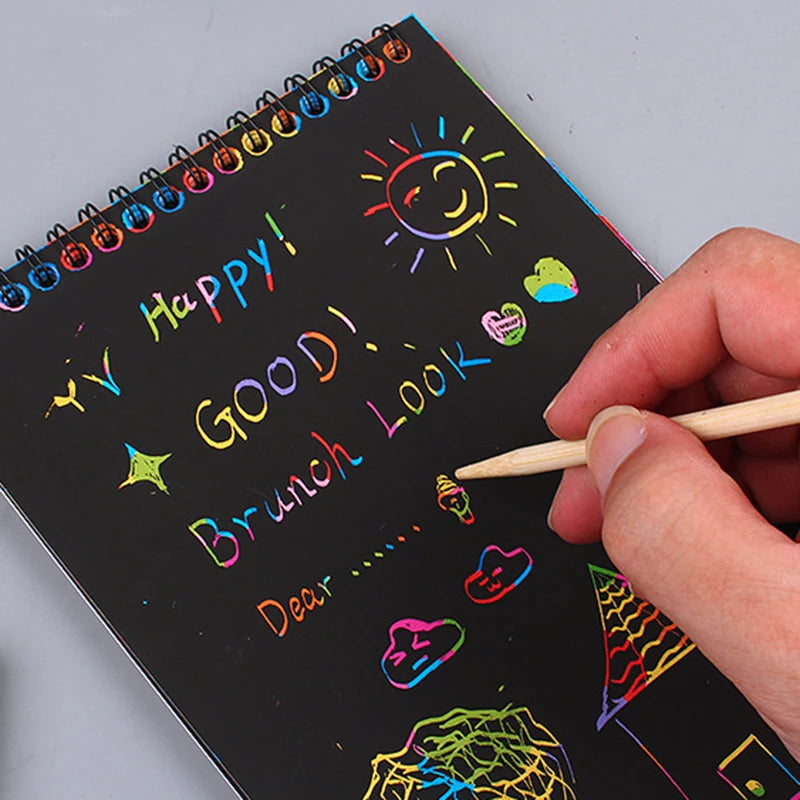 Happy!
GOOD!
Brunch LOOK
Dear ........